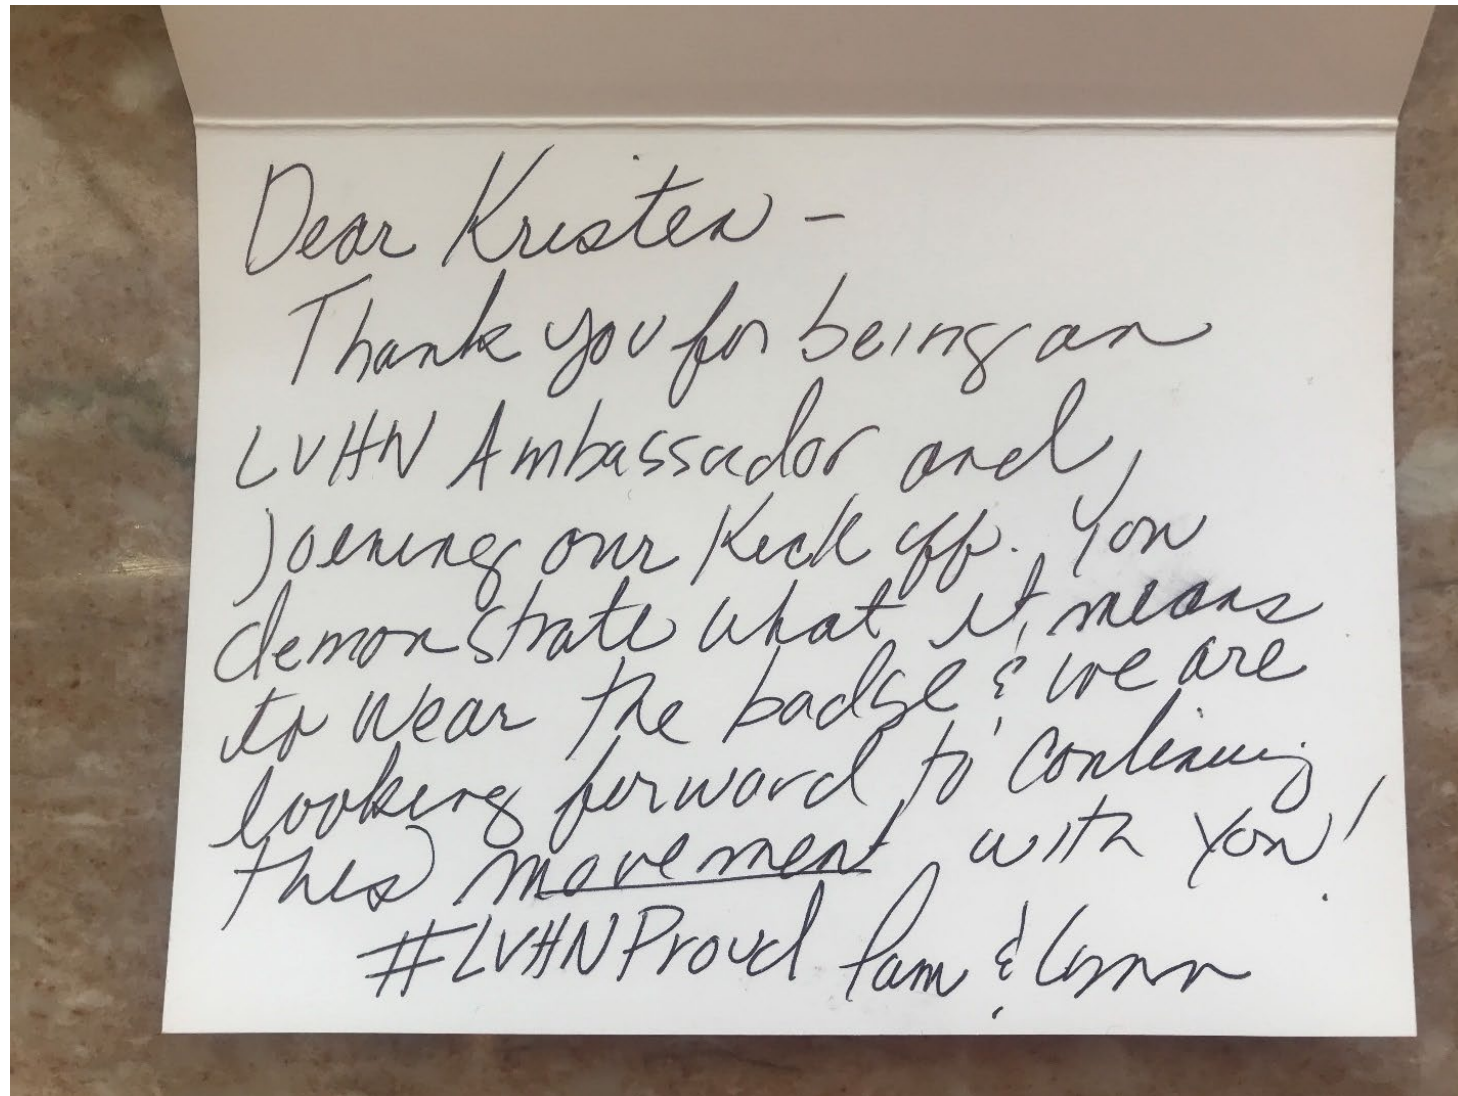 Dear Kristen –
Thank you for being an
LVHN Ambassador and
joining our Kick off. You
demonstrate what it means
to wear the badge & we are
looking forward to continuing
this movement with you!
#LVHNProud Pam & Lynn